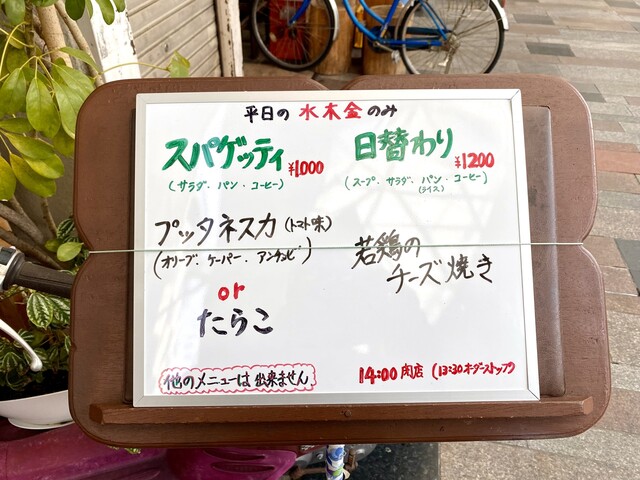 平日の 水木金のみ
スパゲッティ ¥1000
(サラダ、パン・コーヒー)
プッタネスカ (トマト味)
(オリーブ、ケーパー、アンチョビ)
or
たらこ
日替わり ¥1200
(スープ、サラダ、パン・コーヒー)
(ライス)
若鶏の
チーズ焼き
他のメニューは 出来ません
14:00 閉店 (13:30オーダーストップ)